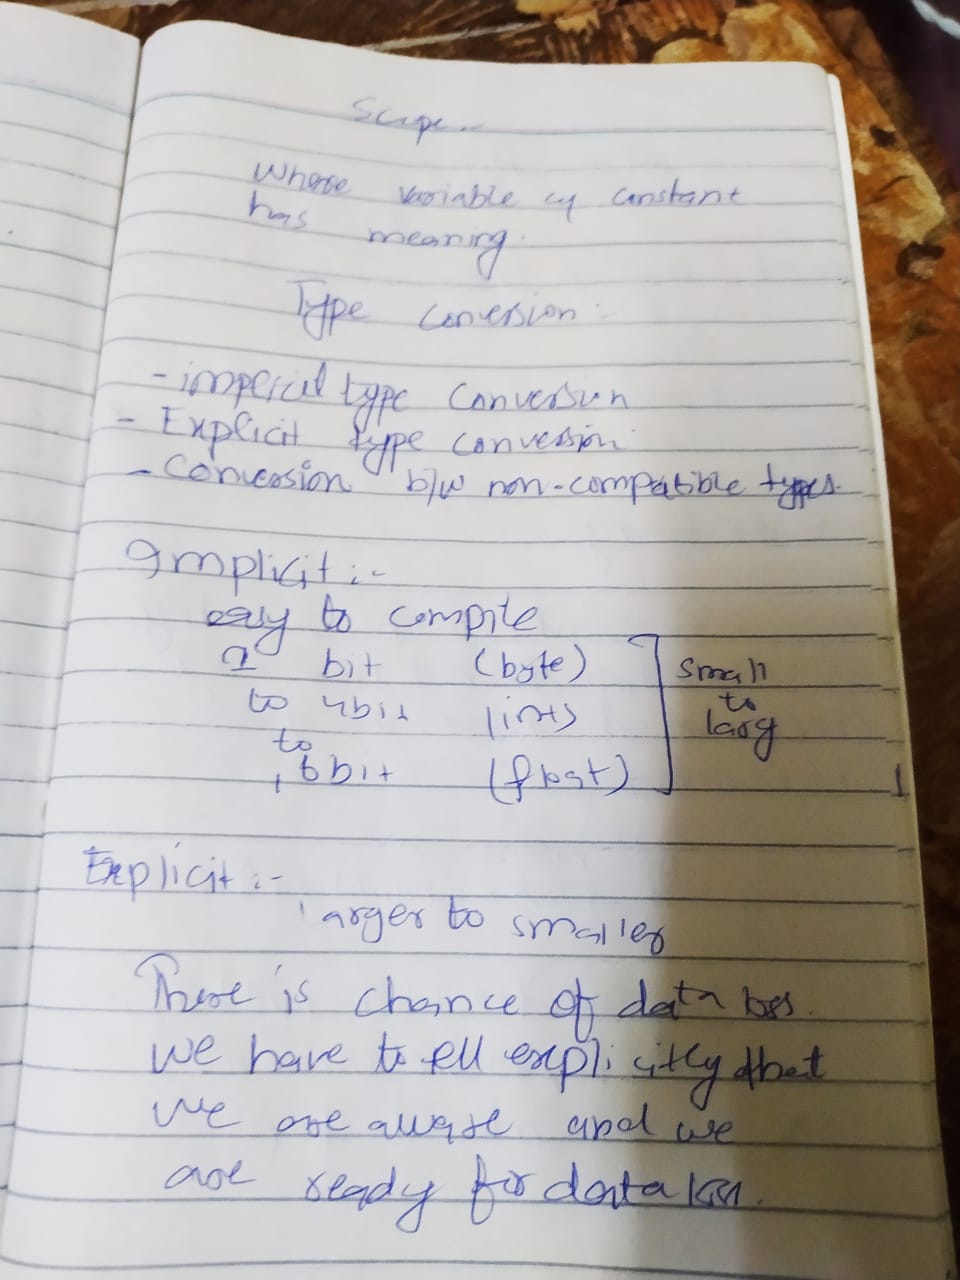 Scope.-
Where variable or constant
has meaning.
Type Conversion :
- imperial type Conversion
- Explicit type conversion.
- Conversion b/w non-compatible types.
Implicit :-
easy to compile
1 bit (byte)
to 4bit (ints
to
16bit (float)
small
to
larg
Explicit :-
larger to smaller
There is chance of data loss.
We have to tell explicitly that
we are aware and we
are ready for data loss.